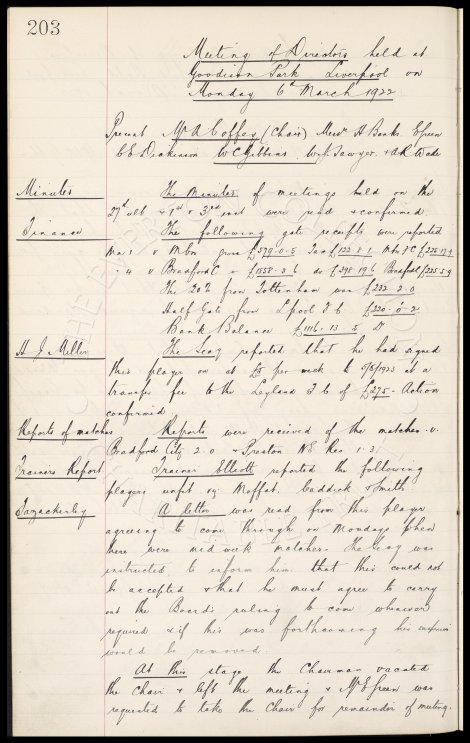 203
Meeting of Directors held at
Goodison Park Liverpool on
Monday 6th March 1922
Present Mr A Coffey (Chair) Messrs H Banks. E Green
C E Dickinson W C Gibbins W J Sawyer. & A R Wade
Minutes The Minutes of meetings held on the
27th ult & 1st & 3rd inst were read & confirmed
Finance The following gate receipts were reported
Mar 1 v M/Bro gross £579-0-5 Tax £122-8-1
" 4 v Bradford C " £1558-3-6 do £398-19-6 Bradford £225-5-9
The 20% from Tottenham was £232-2-0
Half Gate from L'pool F C £220-0-2
Bank Balance £1116-13-5 Dr
H J Miller The Secy reported that he had signed
this player on at £5 per week to 5/5/1923 at a
transfer fee to the Leyland F C of £275- Action
confirmed
Reports of matches Reports were received of the matches. v.
Bradford City 2.0 & Preston N E Res 1.3.
Trainers Report Trainer Elliott reported the following
players unfit vz Moffat, Caddick & Smith
Fazackerley A letter was read from this player
agreeing to come through on Mondays when
there were mid week matches. The Secy was
instructed to inform him that this could not
be accepted & that he must agree to carry
out the Board's ruling to come whenever
required & if this was forthcoming his suspension
would be removed.
At this stage the Chairman vacated
the Chair & left the meeting & Mr E Green was
requested to take the Chair for remainder of meeting.